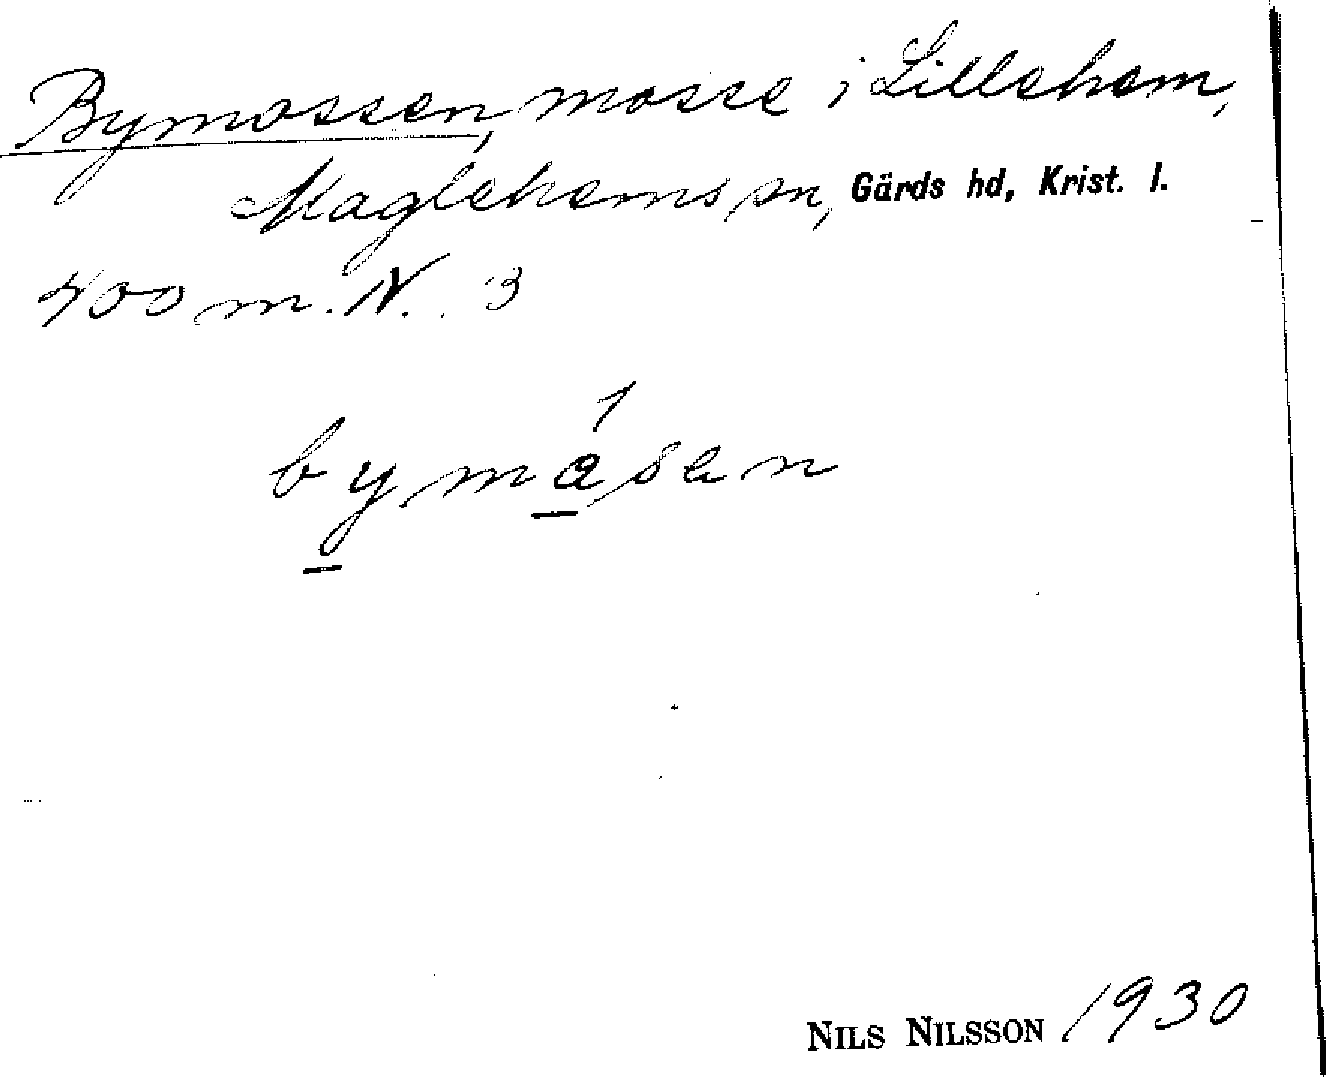 Bymossen, mosse i Lillehem,
Maglehems sn, Gärds hd, Krist. l.
400 m. N. 3
bymåsen
NILS NILSSON 1930